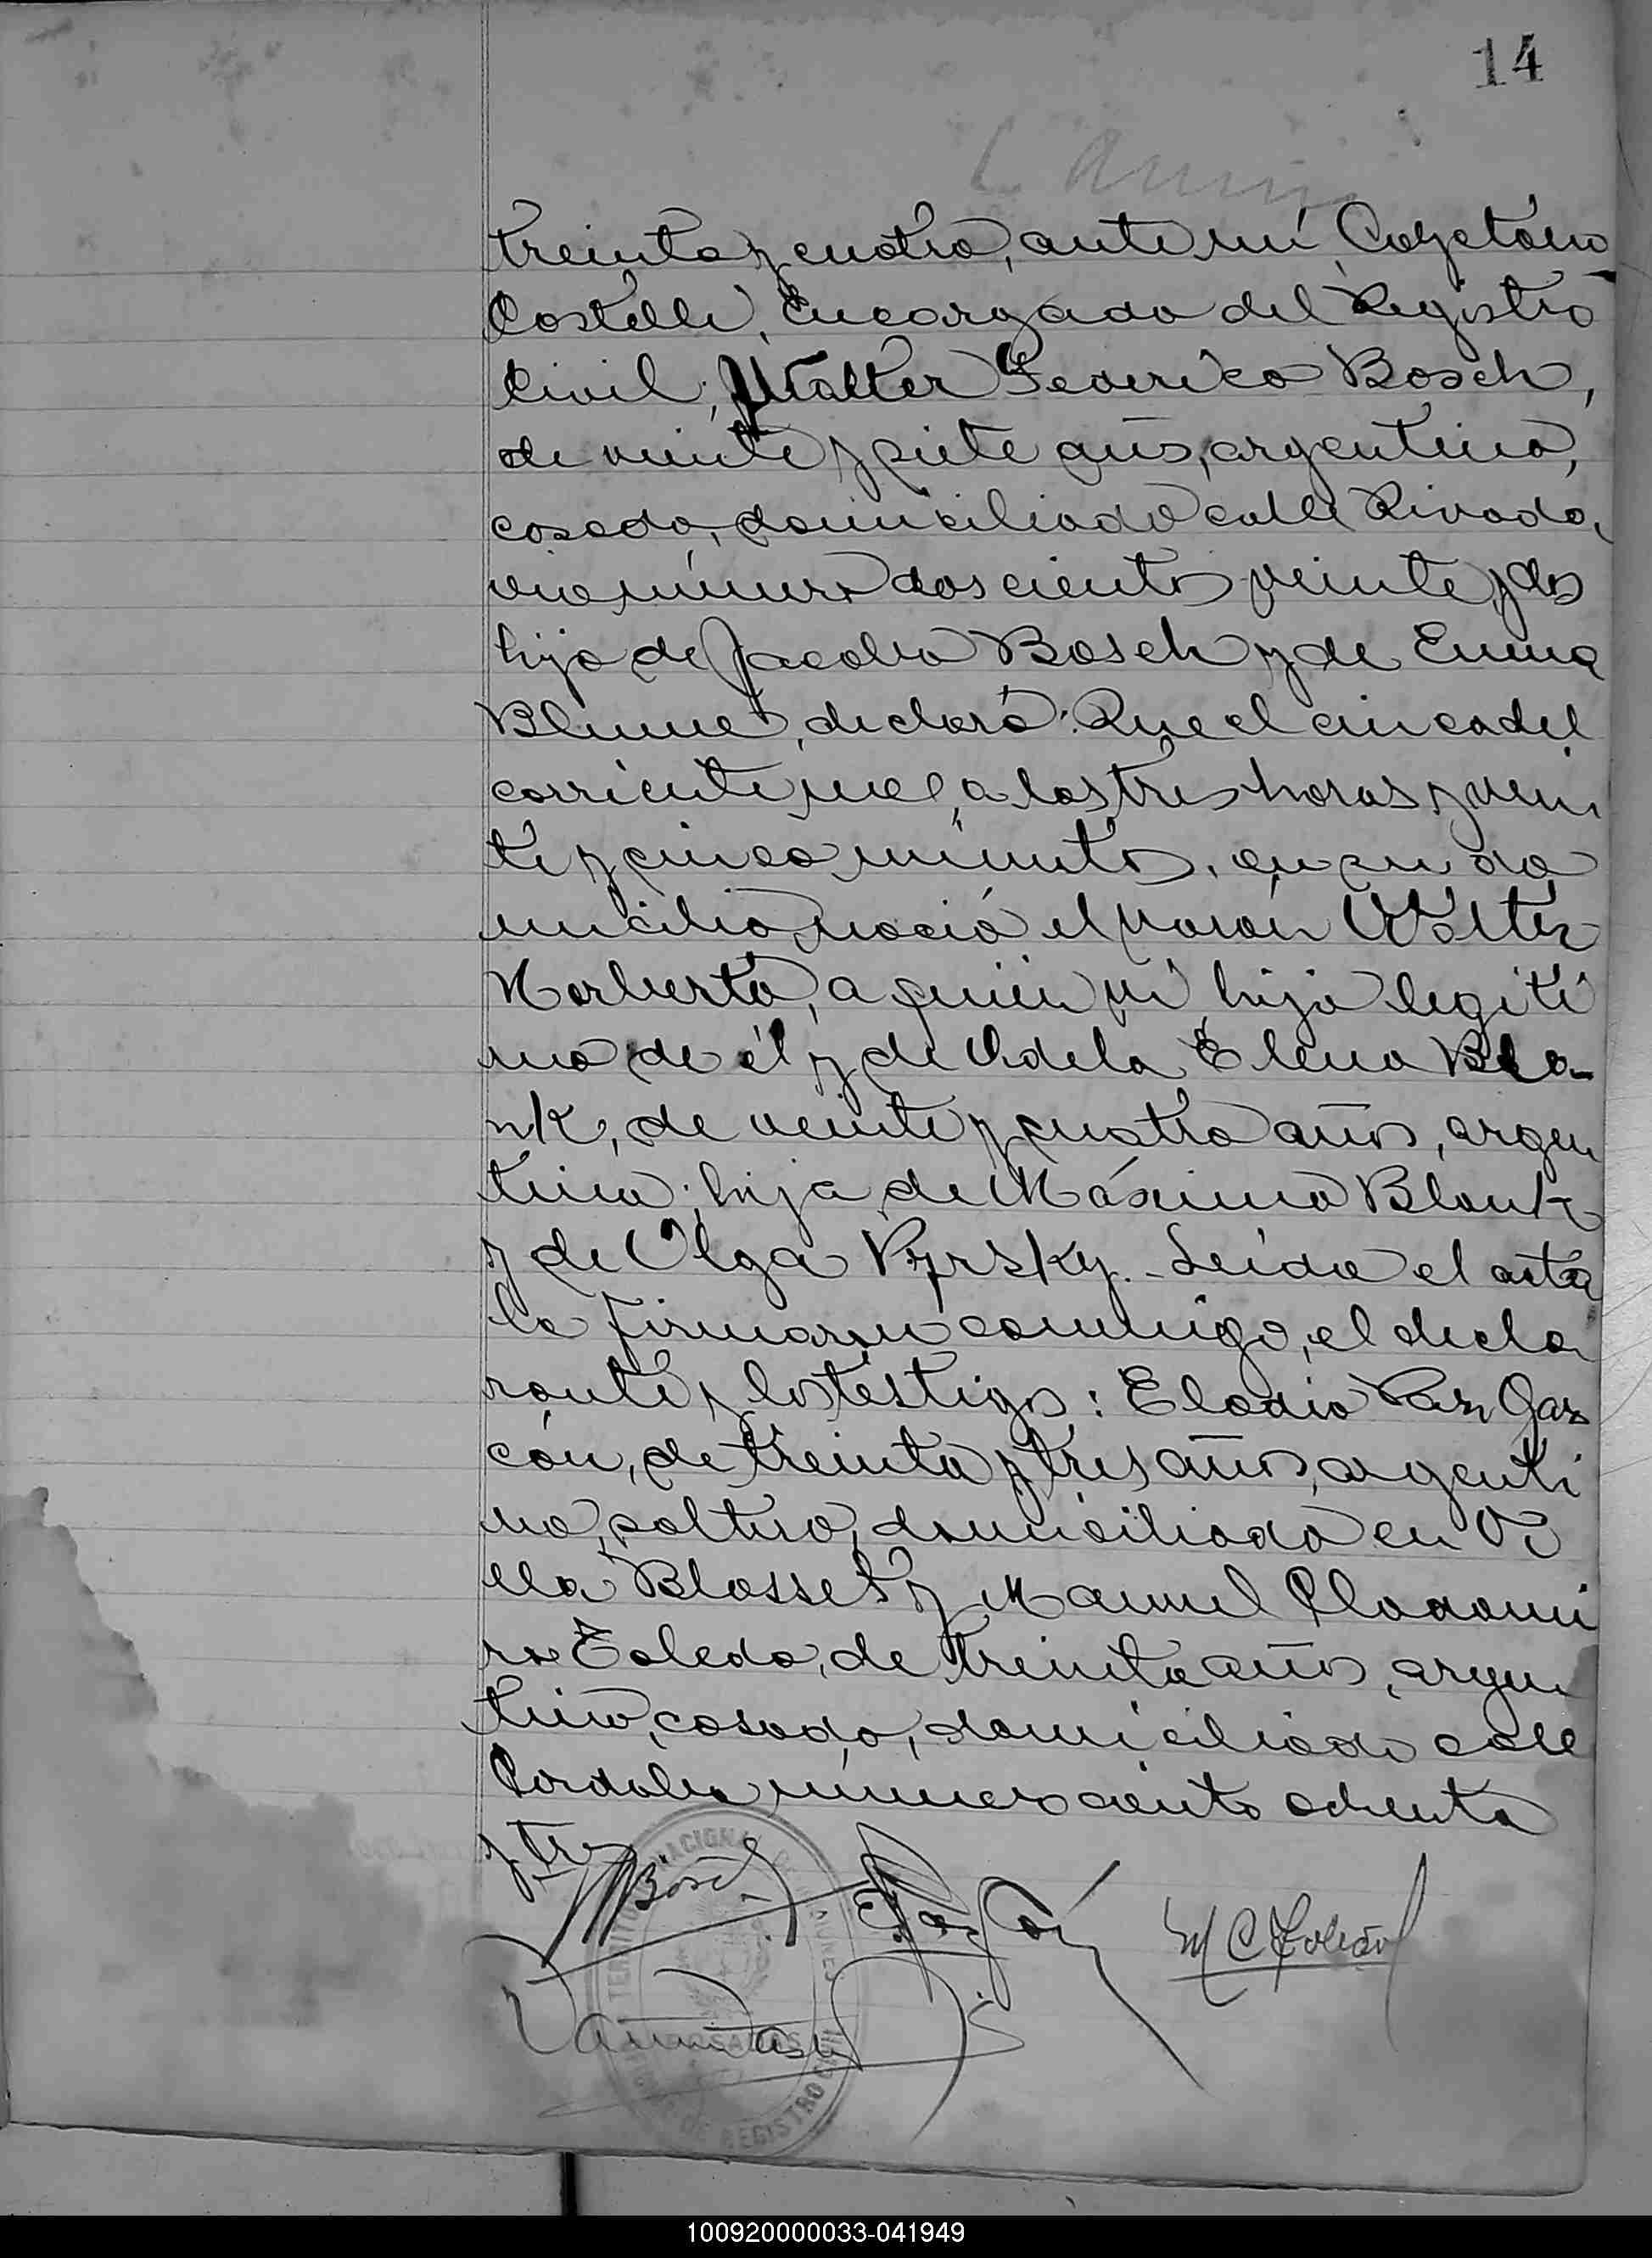 14
treinta y cuatro, ante mí, Cayetano
Castelli, Encargado del Registro
Civil, Walter Federico Bosch,
de veinte y siete años, argentino,
casado, domiciliado calle Rivada,
via número doscientos veinte y dos
hijo de Jacobo Bosch y de Emma
Blume, declaró: Que el cinco del
corriente mes, a las tres horas y vein
te y cinco minutos, en su do
micilio, nació el varon Walter
Norberto, a quien vi, hijo legiti
mo de él y de Adela Elena Bla-
nk, de veinte y cuatro años, argen
tina, hija de Máximo Blank
y de Olga Pyrsky.- Leida el acta
la firmaron conmigo, el decla
rante y los testigos: Elodio Paz Gar
cón, de treinta y tres años, argenti
no, soltero, domiciliado en Vi
lla Blosset y Manuel Clodomi
ro Toledo, de treinta años, argen
tino, casado, domiciliado calle
Cordoba número ciento ochenta
y tres
WBosch
M C Toledo
TERRITORIO NACIONAL
DE REGISTRO CIVIL
100920000033-041949